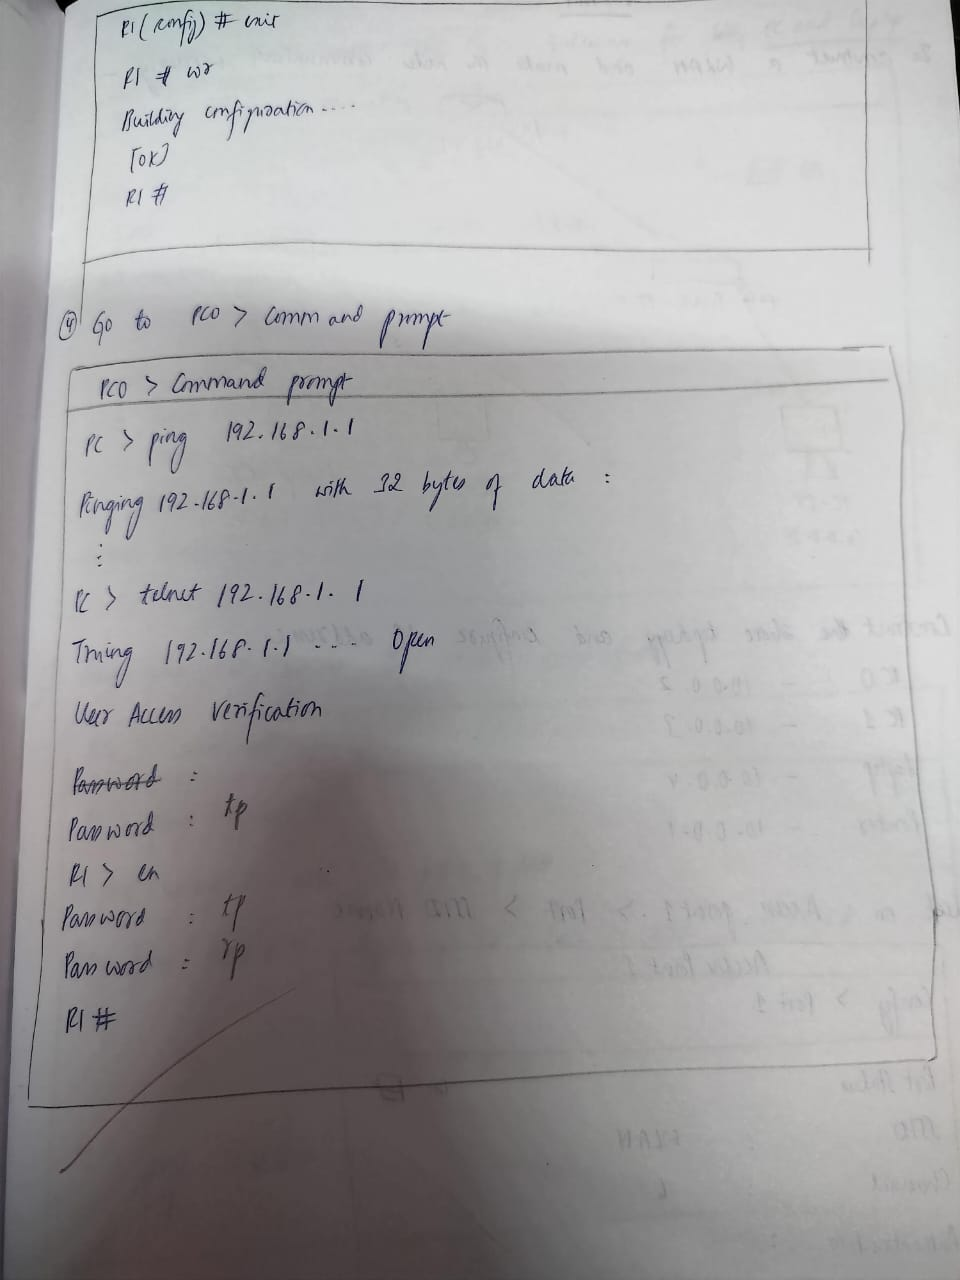 R1(config) # exit
R1 # wr
Building configuration....
[OK]
R1 #
④ Go to PC0 > Command prompt
PC0 > Command prompt
PC > ping 192.168.1.1
Pinging 192.168.1.1 with 32 bytes of data :
⋮
PC > telnet 192.168.1.1
Trying 192.168.1.1 .... Open
User Access Verification
Password :
Password : tp
R1 > en
Password : tp
Password : rp
R1 #